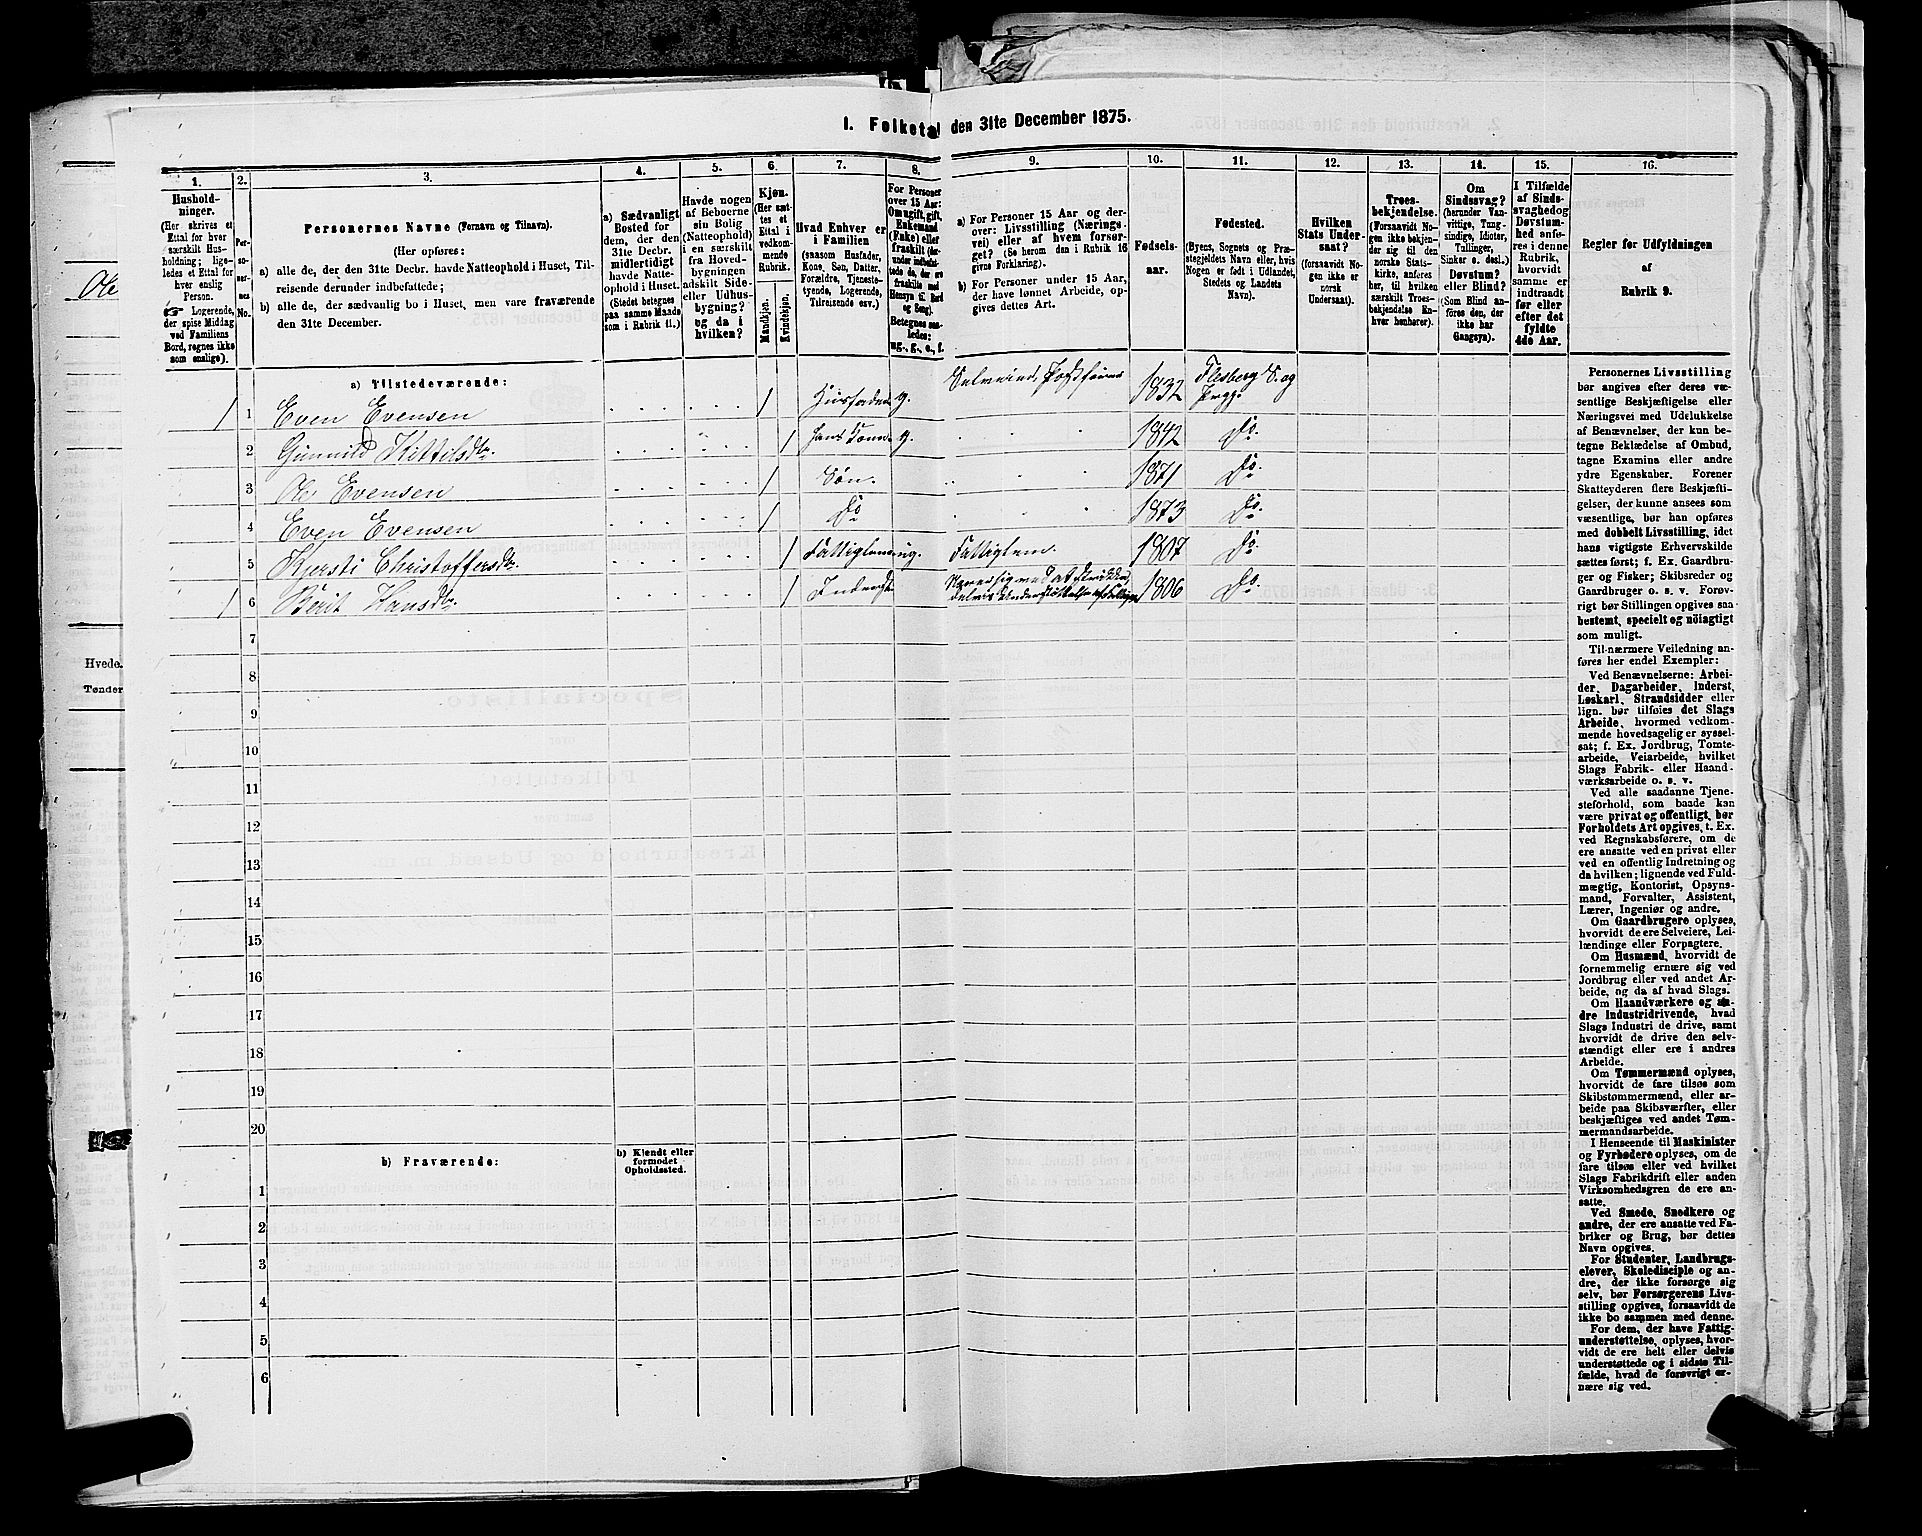 I. Folketal den 31te December 1875.
1.
Hushold-
ninger.
(Her skrives et
Ettal for hver
særskilt Hus-
holdning; lige-
ledes et Ettal for
hver enslig
Person.
☞ Logerende,
der spise Middag
ved Familiens
Bord, regnes ikke
som enslige).
2.
Per-
soner-
nes
No.
3.
Personernes Navne (Fornavn og Tilnavn).
(Her opføres:
a) alle de, der den 31te Decbr. havde Natteophold i Huset, Til-
reisende derunder indbefattede;
b) alle de, der sædvanlig bo i Huset, men vare fraværende
den 31te December.
4.
a) Sædvanligt
Bosted for
dem, der den
31te Decbr.
midlertidigt
havde Natte-
ophold i Huset.
(Stedet betegnes
paa samme Maade
som i Rubrik 11.)
5.
Havde nogen
af Beboerne
sin Bolig
(Natteophold)
i en særskilt
fra Hoved-
bygningen
adskilt Side-
eller Udhus-
bygning?
og da i
hvilken?
6.
Kjøn.
(Her sæt-
tes et
Ettal i
vedkom-
mende
Rubrik.
Mandkjøn.
Kvindekjøn.
7.
Hvad Enhver er
i Familien
(saasom Husfader,
Kone, Søn, Datter,
Forældre, Tjeneste-
tyende, Logerende,
Tilreisende osv.)
8.
For Personer
over 15 Aar:
Om ugift, gift,
Enkemand
(Enke) eller
fraskilt (her-
under indbefat-
tede de, der ere
fraskilte med
Hensyn til Bord
og Seng).
Betegnes saa-
ledes:
ug., g., e., f.
9.
a) For Personer 15 Aar og der-
over: Livsstilling (Nærings-
vei) eller af hvem forsør-
get? (Se herom den i Rubrik 16
givne Forklaring).
b) For Personer under 15 Aar,
der have lønnet Arbeide, op-
gives dettes Art.
10.
Fødsels-
aar.
11.
Fødested.
(Byens, Sognets og Præ-
stegjeldets Navn eller, hvis
Nogen er født i Udlandet,
Stedets og Landets
Navn).
12.
Hvilken
Stats Under-
saat?
(forsaavidt No-
gen ikke er
norsk
Undersaat).
13.
Troes-
bekjendelse.
(Forsaavidt No-
gen ikke bekjen-
der sig til den
norske Stats-
kirke, anføres
her, til hvilken
særskilt Troes-
bekjendelse En-
hver henhører).
14.
Om
Sindssvag?
(herunder Van-
vittige, Tung-
sindige, Idioter,
Tullinger,
Sinker o. desl.).
Døvstum?
eller Blind?
(Som Blind an-
føres den, der
ikke har
Gangsyn).
15.
I Tilfælde
af Sinds-
svaghed og
Døvstum-
hed anfø-
res i denne
Rubrik,
hvorvidt
samme er
indtraadt
før eller
efter det
fyldte
4de Aar.
16.
Regler for Udfyldningen
af
Rubrik 9.
a) Tilstedeværende:
1 1 Even Evensen 1 Husfader g. Selveier, 1832 Flesberg S. og
Prgj.
2 Gunnild Kittilsdtr. 1 hans Kone g. 1842 Do
3 Ole Evensen 1 Søn. 1871 Do.
4 Even Evensen 1 Do 1873 Do.
5 Kjersti Christoffersdtr. 1 Fattiglem ug. Fattiglem. 1807 Do
1 6 Berit Hansdtr. 1 Inderst 1806 Do.
7
8
9
10
11
12
13
14
15
16
17
18
19
20
b) Fraværende:
b) Kjendt eller
formodet
Opholdssted.
1
2
3
4
5
6
Personernes Livsstilling
bør angives efter deres væ-
sentlige Beskjæftigelse eller
Næringsvei med Udelukkelse
af Benævnelser, der kun be-
tegne Beklædelse af Ombud,
tagne Examina eller andre
ydre Egenskaber. Forener
Skatteyderen flere Beskjæfti-
gelser, der kunne ansees som
væsentlige, bør han opføres
med dobbelt Livsstilling, idet
hans vigtigste Erhvervskilde
sættes først; f. Ex. Gaardbru-
ger og Fisker; Skibsreder og
Gaardbruger o. s. v. Forøv-
rigt bør Stillingen opgives saa
bestemt, specielt og nöiagtigt
som muligt.
Til nærmere Veiledning an-
føres her endel Exempler:
Ved Benævnelserne: Arbei-
der, Dagarbeider, Inderst,
Løskarl, Strandsidder eller
lign. bør tilføies det Slags
Arbeide, hvormed vedkom-
mende hovedsagelig er syssel-
sat; f. Ex. Jordbrug, Tomte-
arbeide, Veiarbeide, hvilket
Slags Fabrik- eller Haand-
værksarbeide o. s. v.
Ved alle saadanne Tjene-
steforhold, som baade kan
være privat og offentligt, bør
Forholdets Art opgives, t. Ex.
ved Regnskabsførere, om de
ere ansatte ved en privat eller
ved en offentlig Indretning og
da hvilken; lignende ved Fuld-
mægtig, Kontorist, Opsyns-
mand, Forvalter, Assistent,
Lærer, Ingeniør og andre.
Om Gaardbrugere oplyses,
hvorvidt de ere Selveiere, Lei-
lændinge eller Forpagtere.
Om Husmænd, hvorvidt de
fornemmelig ernære sig ved
Jordbrug eller ved andet Ar-
beide, og da af hvad Slags.
Om Haandværkere og an-
dre Industridrivende, hvad
Slags Industri de drive, samt
hvorvidt de drive den selv-
stændigt eller ere i andres
Arbeide.
Om Tømmermænd oplyses,
hvorvidt de fare tilsøs som
Skibstømmermænd, eller ar-
beide paa Skibsværfter, eller
beskjæftiges ved andet Tøm-
mermandsarbeide.
I Henseende til Maskinister
og Fyrbødere oplyses, om de
fare tilsøs eller ved hvilket
Slags Fabrikdrift eller anden
Virksomhedsgren de ere an-
satte.
Ved Smede, Snedkere og
andre, der ere ansatte ved Fa-
briker og Brug, bør dettes
Navn opgives.
For Studenter, Landbrugs-
elever, Skoledisciple og an-
dre, der ikke forsørge sig
selv, bør Forsørgerens Livs-
stilling opgives, forsaavidt de
ikke bo sammen med denne.
For dem, der have Fattig-
understøttelse, oplyses, hvor-
vidt de ere helt eller delvis
understøttede og i sidste Til-
fælde, hvad de forøvrigt er-
nære sig ved.
Ole
Hvede.
Tønder